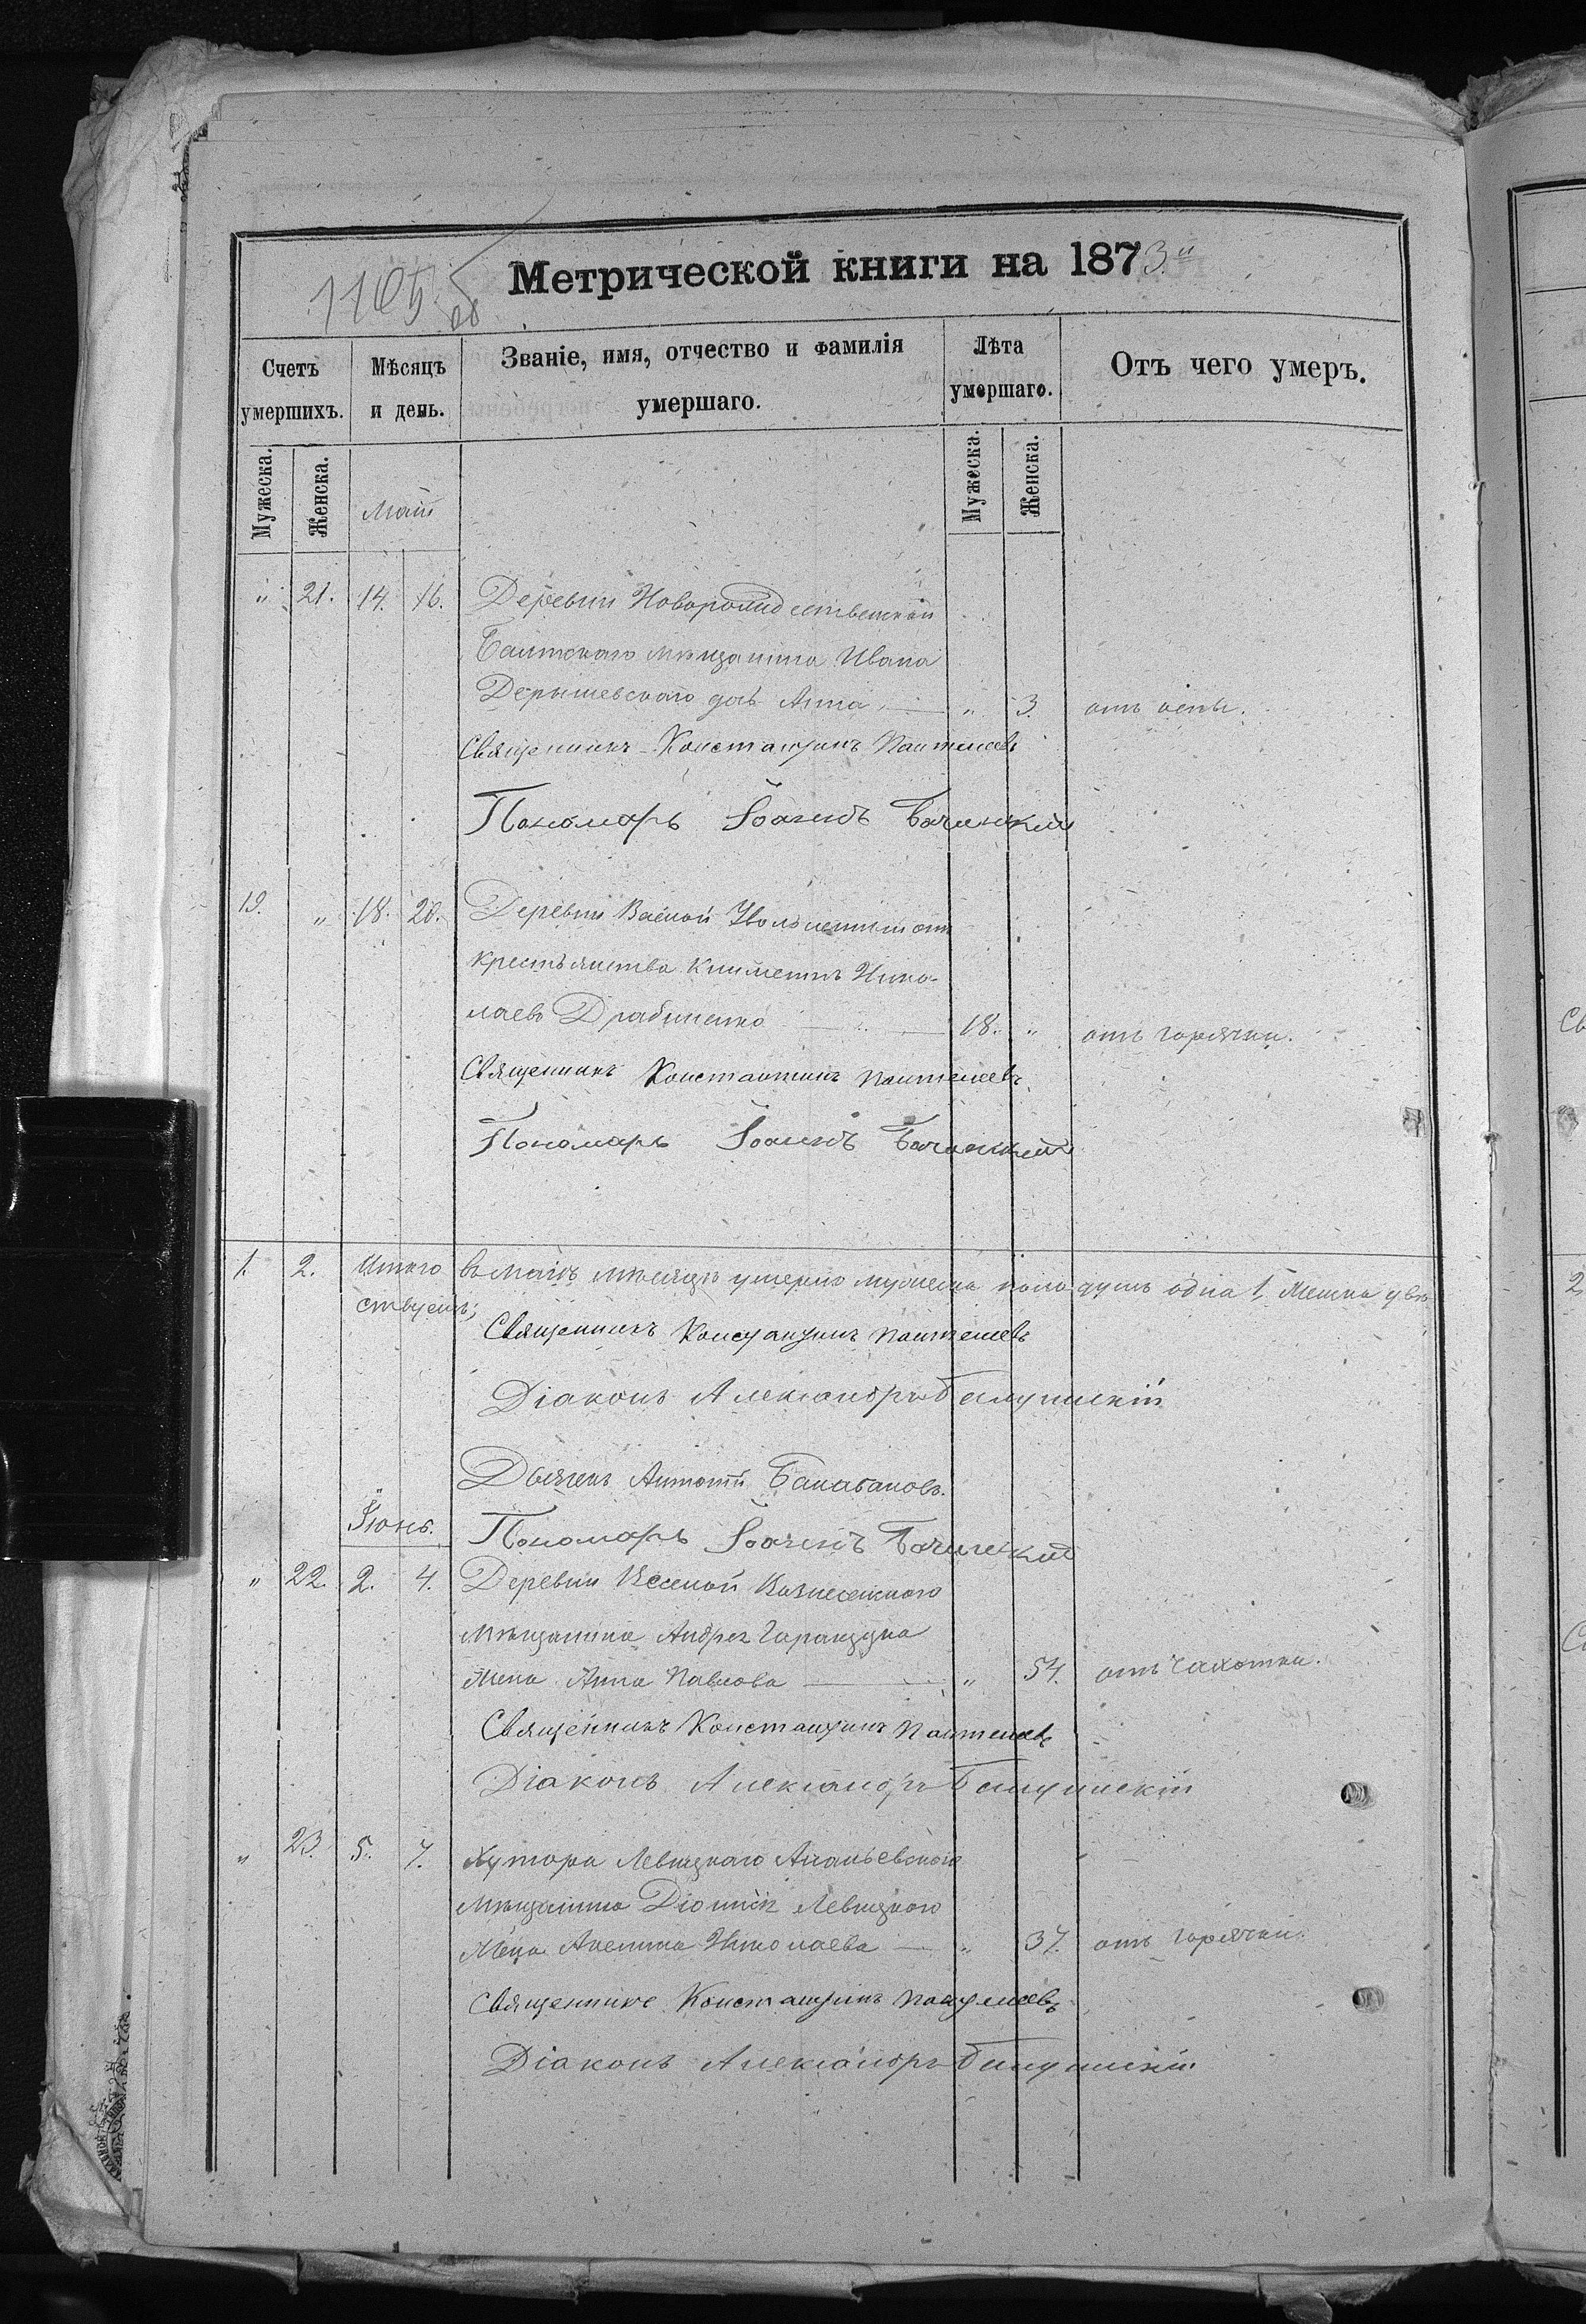 1105 об
Метрической книги на 1873й
Счетъ умершихъ.
Мѣсяцъ и день.
Званіе, имя, отчество и фамилія умершаго.
Лѣта умершаго.
Отъ чего умеръ.
Мужеска.
Женска.
Май
Мужеска.
Женска.
" 21. 14. 16. Деревни Новорождественской
Балтскаго мѣщанина Ивана
Дерышевскаго дочь Анна — " 3. отъ оспы.
Священникъ Константинъ Пантелеевъ
Пономарь Іоаннъ Бачинскій
19. " 18. 20. Деревни Ваёной Уволенный отъ
крестьянства Климентъ Нико-
лаевъ Драбиненко — 18. " отъ горячки.
Священникъ Константинъ Пантелеевъ
Пономарь Іоаннъ Бачинскій
1. 2. Итого въ маѣ мѣсяцѣ умерло мужеска пола душъ одна 1, женска двѣ
Священникъ Константинъ Пантелеевъ
Діаконъ Александръ
Дьячекъ Антоній Балабановъ.
Іюнь.
Пономарь Іоаннъ Бачинскій
" 22. 2. 4. Деревни Вознесенскаго
мѣщанина Андрея
жена Анна Павлова — " 54. отъ чахотки.
Священникъ Константинъ Пантелеевъ
Діаконъ Александръ
" 23. 5. 7. Хутора Левицкаго Ананьевскаго
мѣщанина Діонисія Левицкаго
жена Акелина Николаева — " 37. отъ горячки.
Священникъ Константинъ Пантелеевъ
Діаконъ Александръ